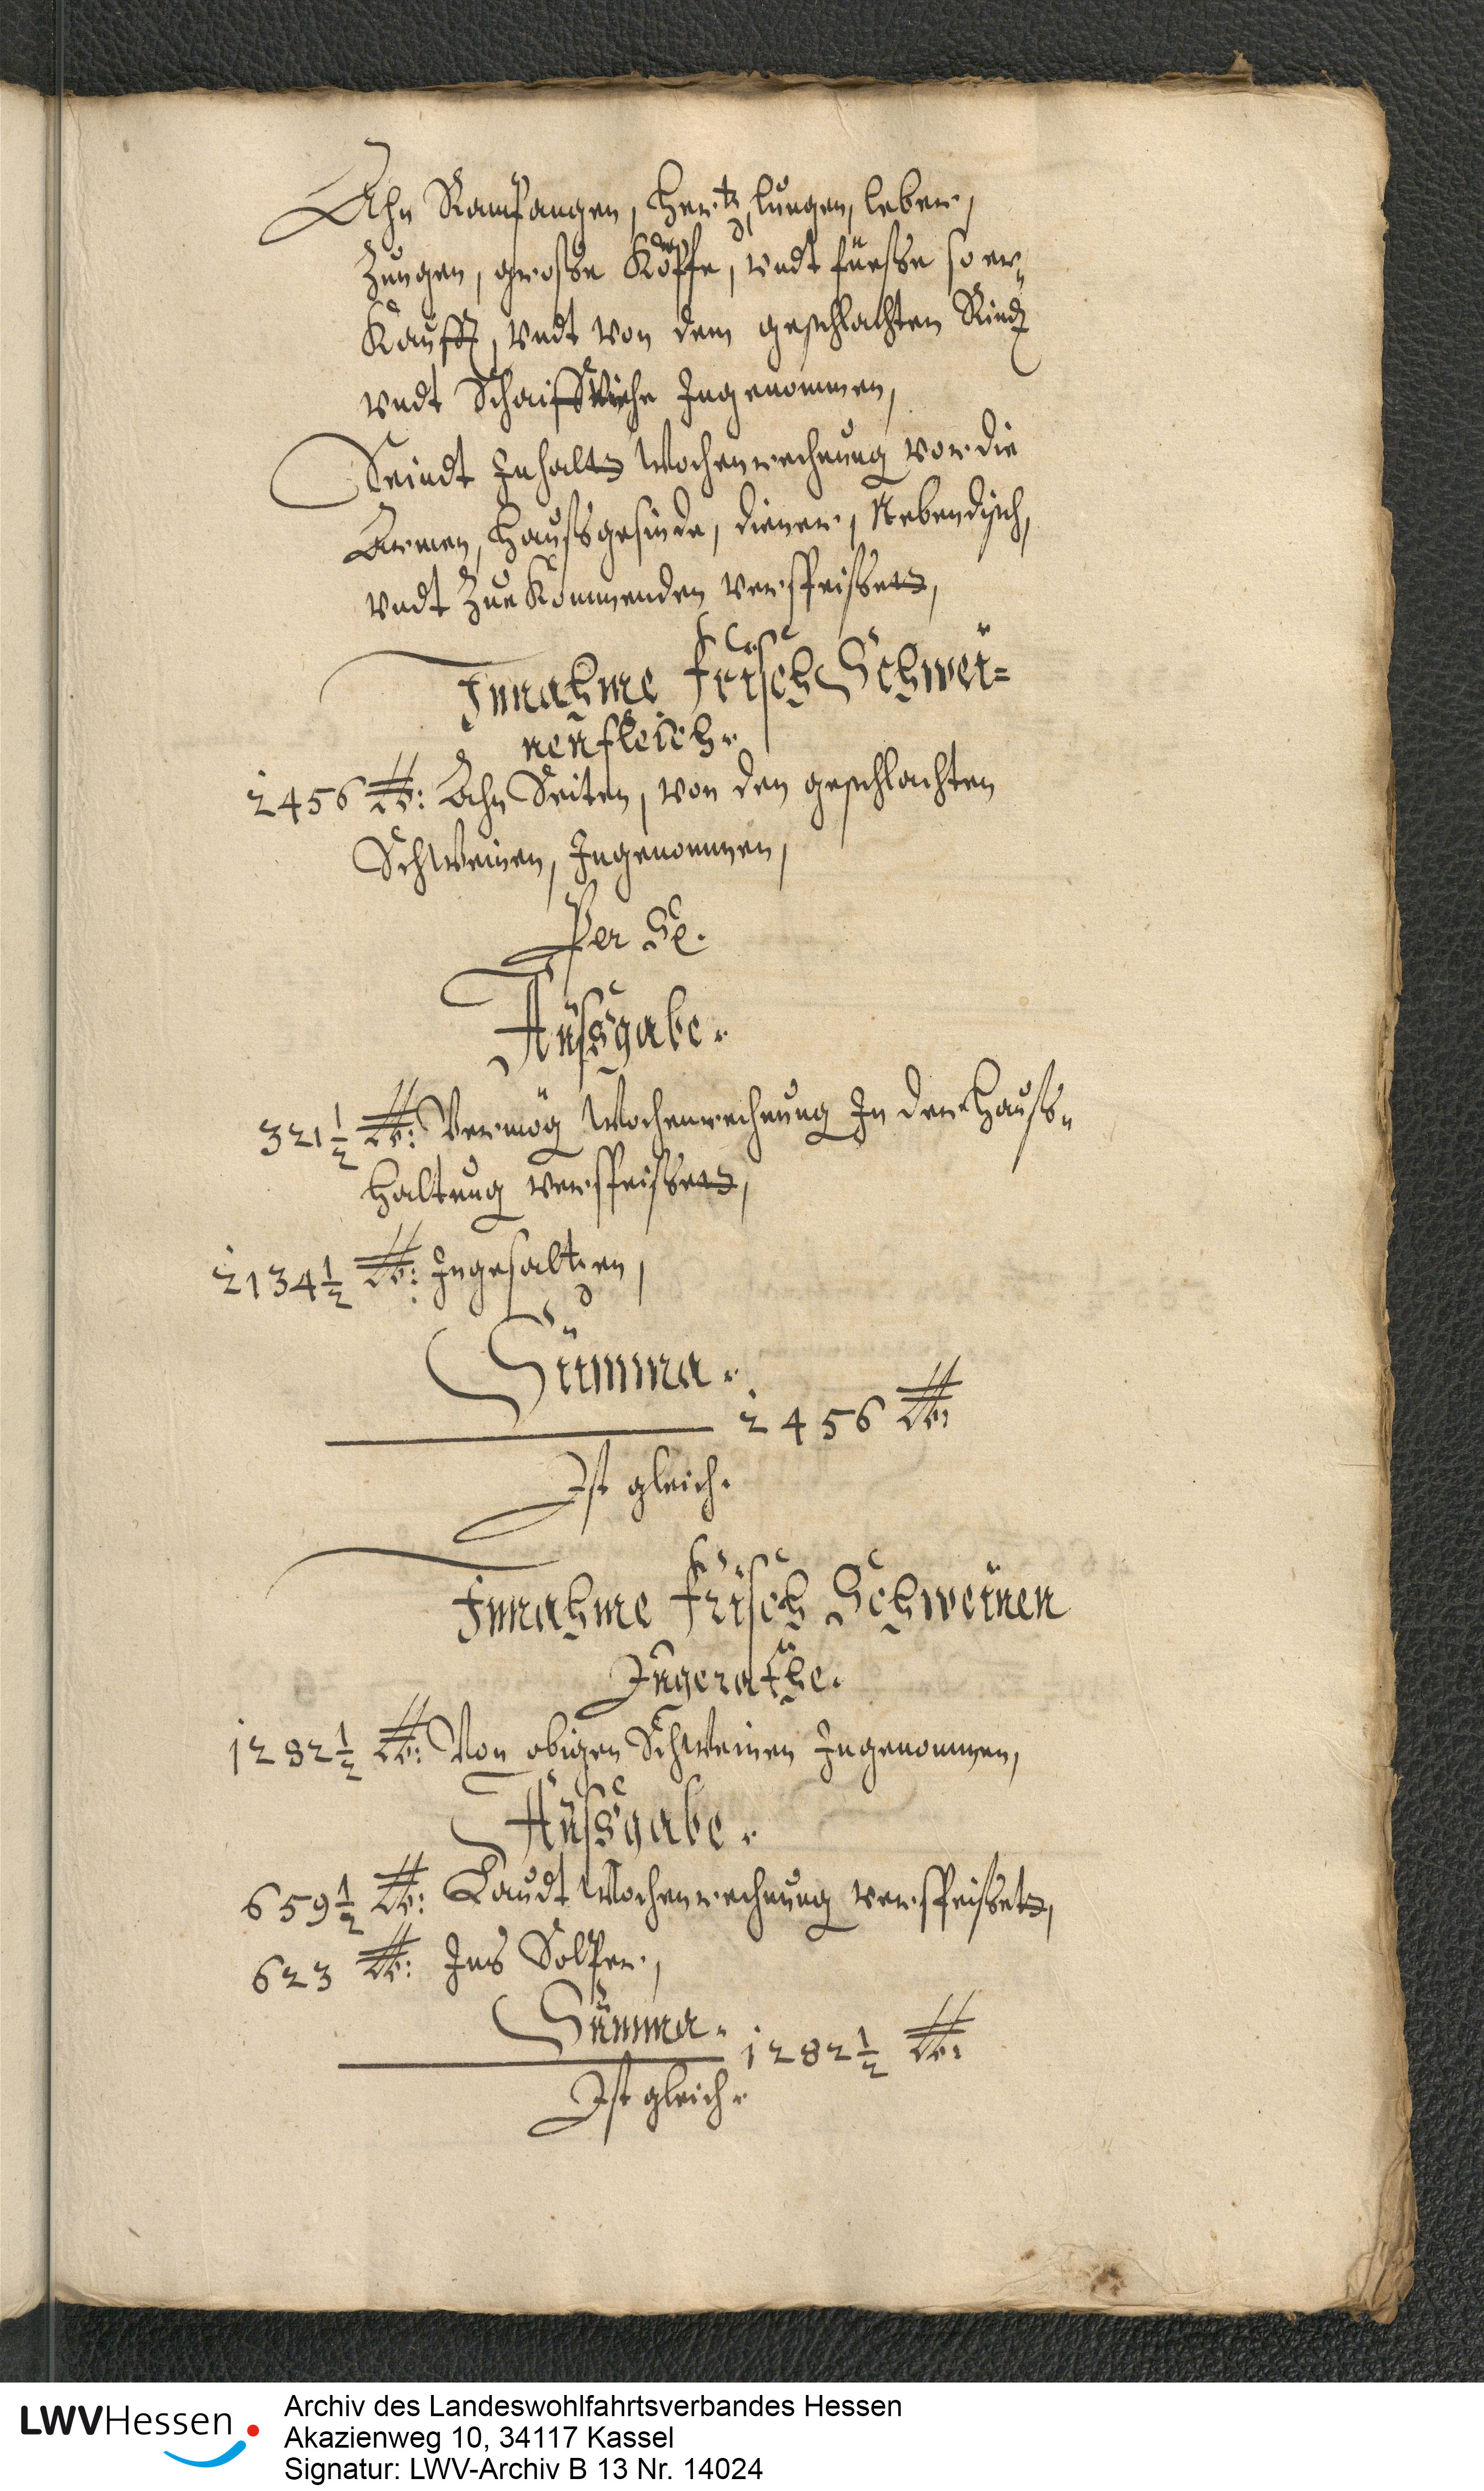 Ahn Kamfangen, Hertz, lungen, leber,
Zungen, grosse Köpffe, undt füesse so er-
Kaufft, undt von dem geschlachten Rind
undt Schaiffviehe Ingenommen,
Seindt Inhalts Wochenrechnung vor die
Armen, Haußgesinde, diener, Nebendisch,
undt Zue Kommenden verspeisset,
Innahme frisch Schwei=
nenfleisch.
2456 lb: Ahn Seiten, von den geschlachten
Schweinen, Ingenommen,
Per Se.
Außgabe.
321 1/2 lb: Vermög Wochenrechnung In der Hauß-
haltung verspeisset,
2134 1/2 lb: Ingesaltzen,
Summa.
2456 lb:
Ist gleich.
Innahme frisch Schweinen
Ingerathe.
1282 1/2 lb: Von obigen Schweinen Ingenommen,
Außgabe.
659 1/2 lb: Laudt Wochenrechnung verspeisset,
623 lb: Ins Solper,
Summa.
1282 1/2 lb:
Ist gleich.
LWVHessen
Archiv des Landeswohlfahrtsverbandes Hessen
Akazienweg 10, 34117 Kassel
Signatur: LWV-Archiv B 13 Nr. 14024